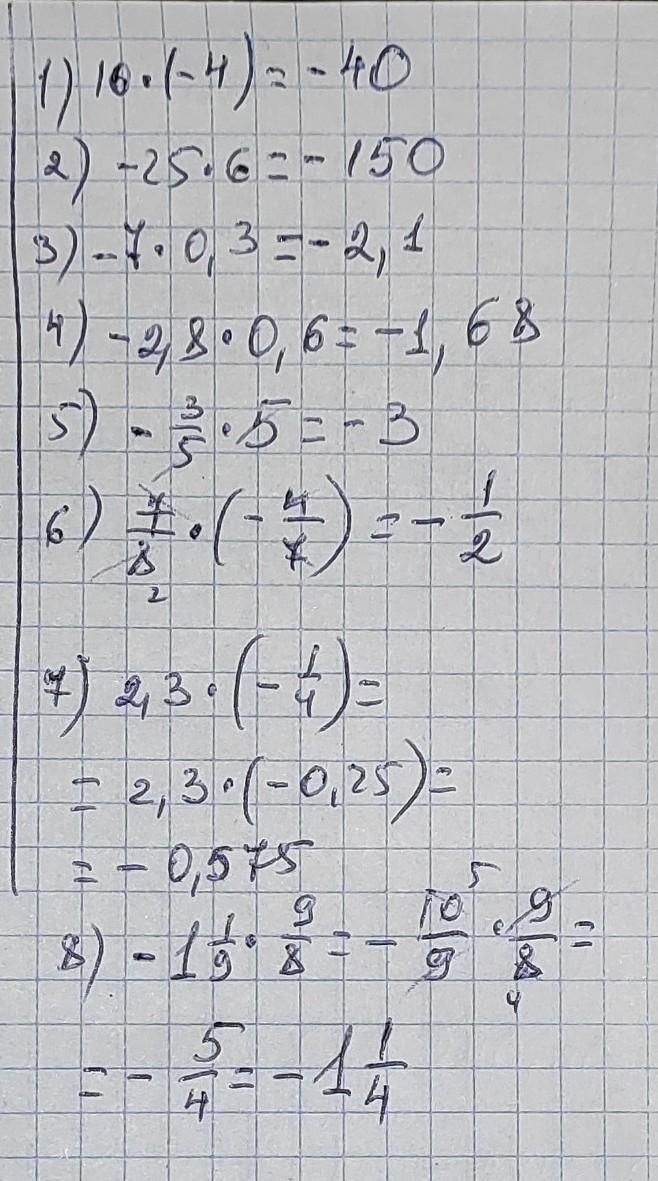 1) 10·(-4)=-40
2) -25·6=-150
3) -7·0,3=-2,1
4) -2,8·0,6=-1,68
5) -3/5·5=-3
6) 7/8·(-4/7)=-1/2
2
7) 2,3·(-1/4)=
=2,3·(-0,25)=
=-0,575
5
8) -1 1/9·9/8=-10/9·9/8=
4
=-5/4=-1 1/4